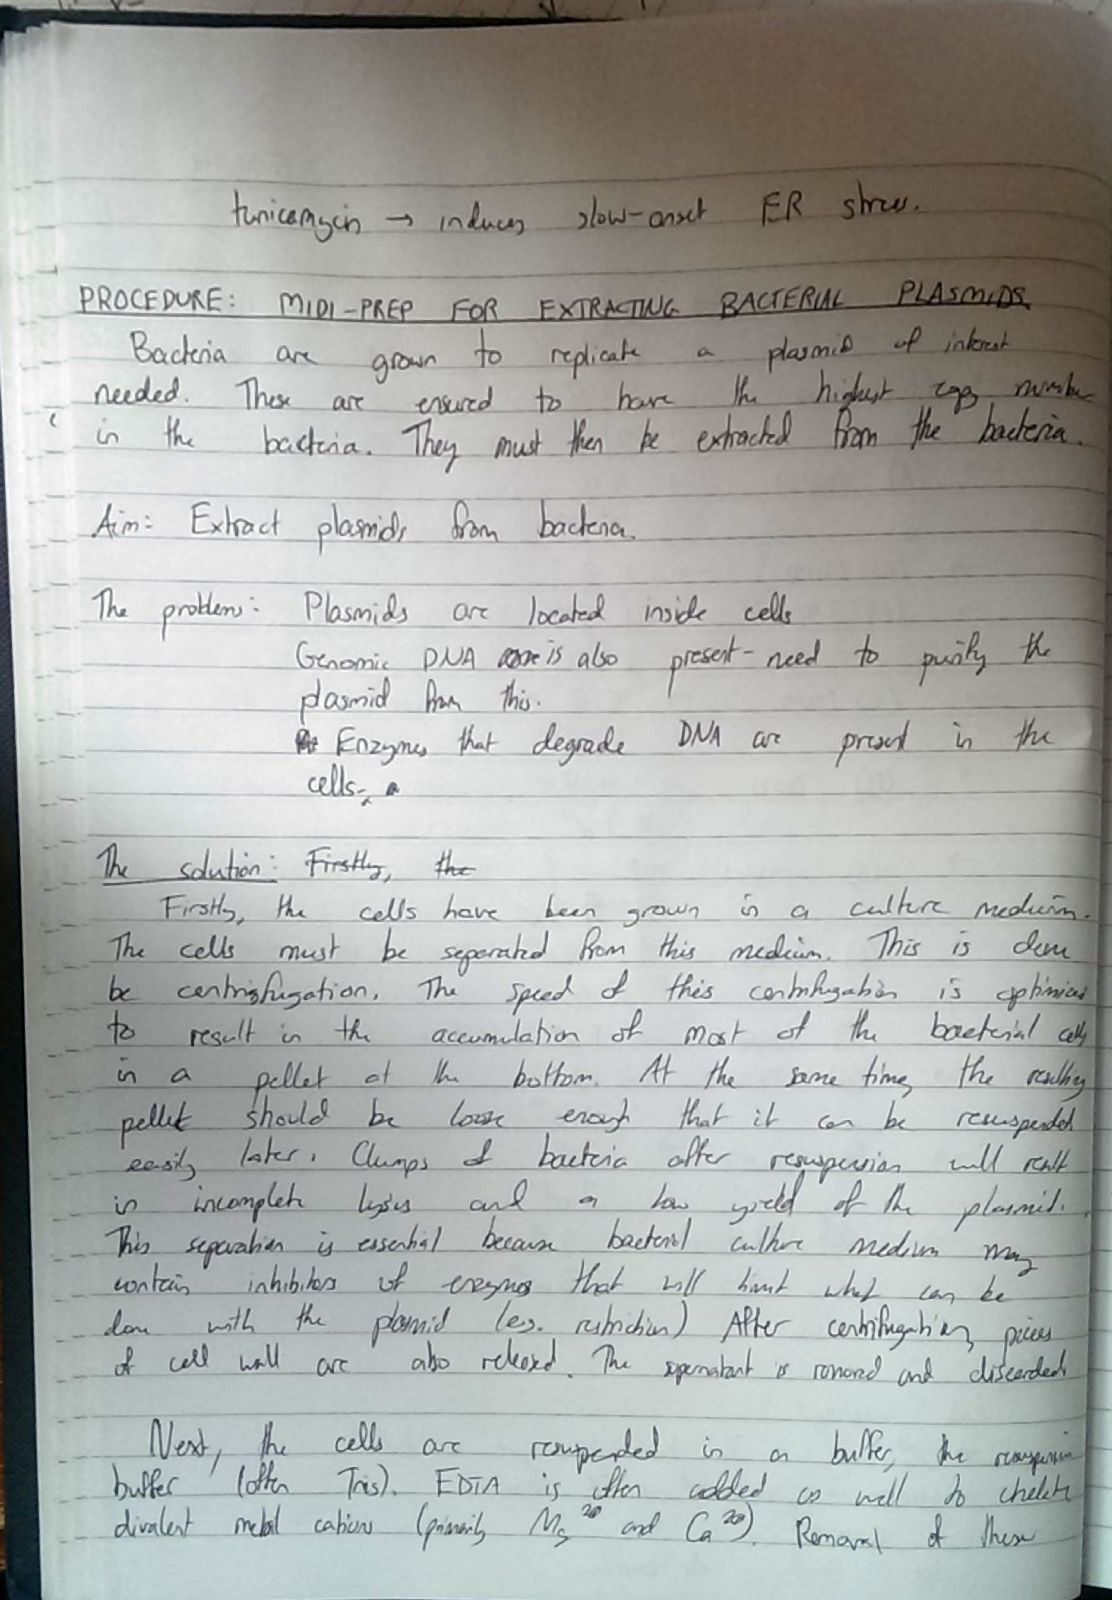 tunicamycin → induces slow-onset ER stress.
PROCEDURE: MIDI-PREP FOR EXTRACTING BACTERIAL PLASMIDS
Bacteria are grown to replicate a plasmid of interest
needed. These are ensured to have the highest copy number
in the bacteria. They must then be extracted from the bacteria.
Aim: Extract plasmids from bacteria.
The problem: Plasmids are located inside cells
Genomic DNA is also present - need to purify the
plasmid from this.
Enzymes that degrade DNA are present in the
cells.
The solution: Firstly, the
Firstly, the cells have been grown in a culture medium.
The cells must be separated from this medium. This is done
be centrifugation. The speed of this centrifugation is optimised
to result in the accumulation of most of the bacterial cells
in a pellet at the bottom. At the same time, the resulting
pellet should be loose enough that it can be resuspended
easily later. Clumps of bacteria after resuspension will result
in incomplete lysis and a low yield of the plasmid.
This separation is essential because bacterial culture medium may
contain inhibitors of enzymes that will limit what can be
done with the plasmid (eg. restriction) After centrifugation, pieces
of cell wall are also released. The supernatant is removed and discarded
Next, the cells are resuspended in a buffer, the resuspension
buffer (often Tris). EDTA is often added as well to chelate
divalent metal cations (primarily Mg and Ca). Removal of these